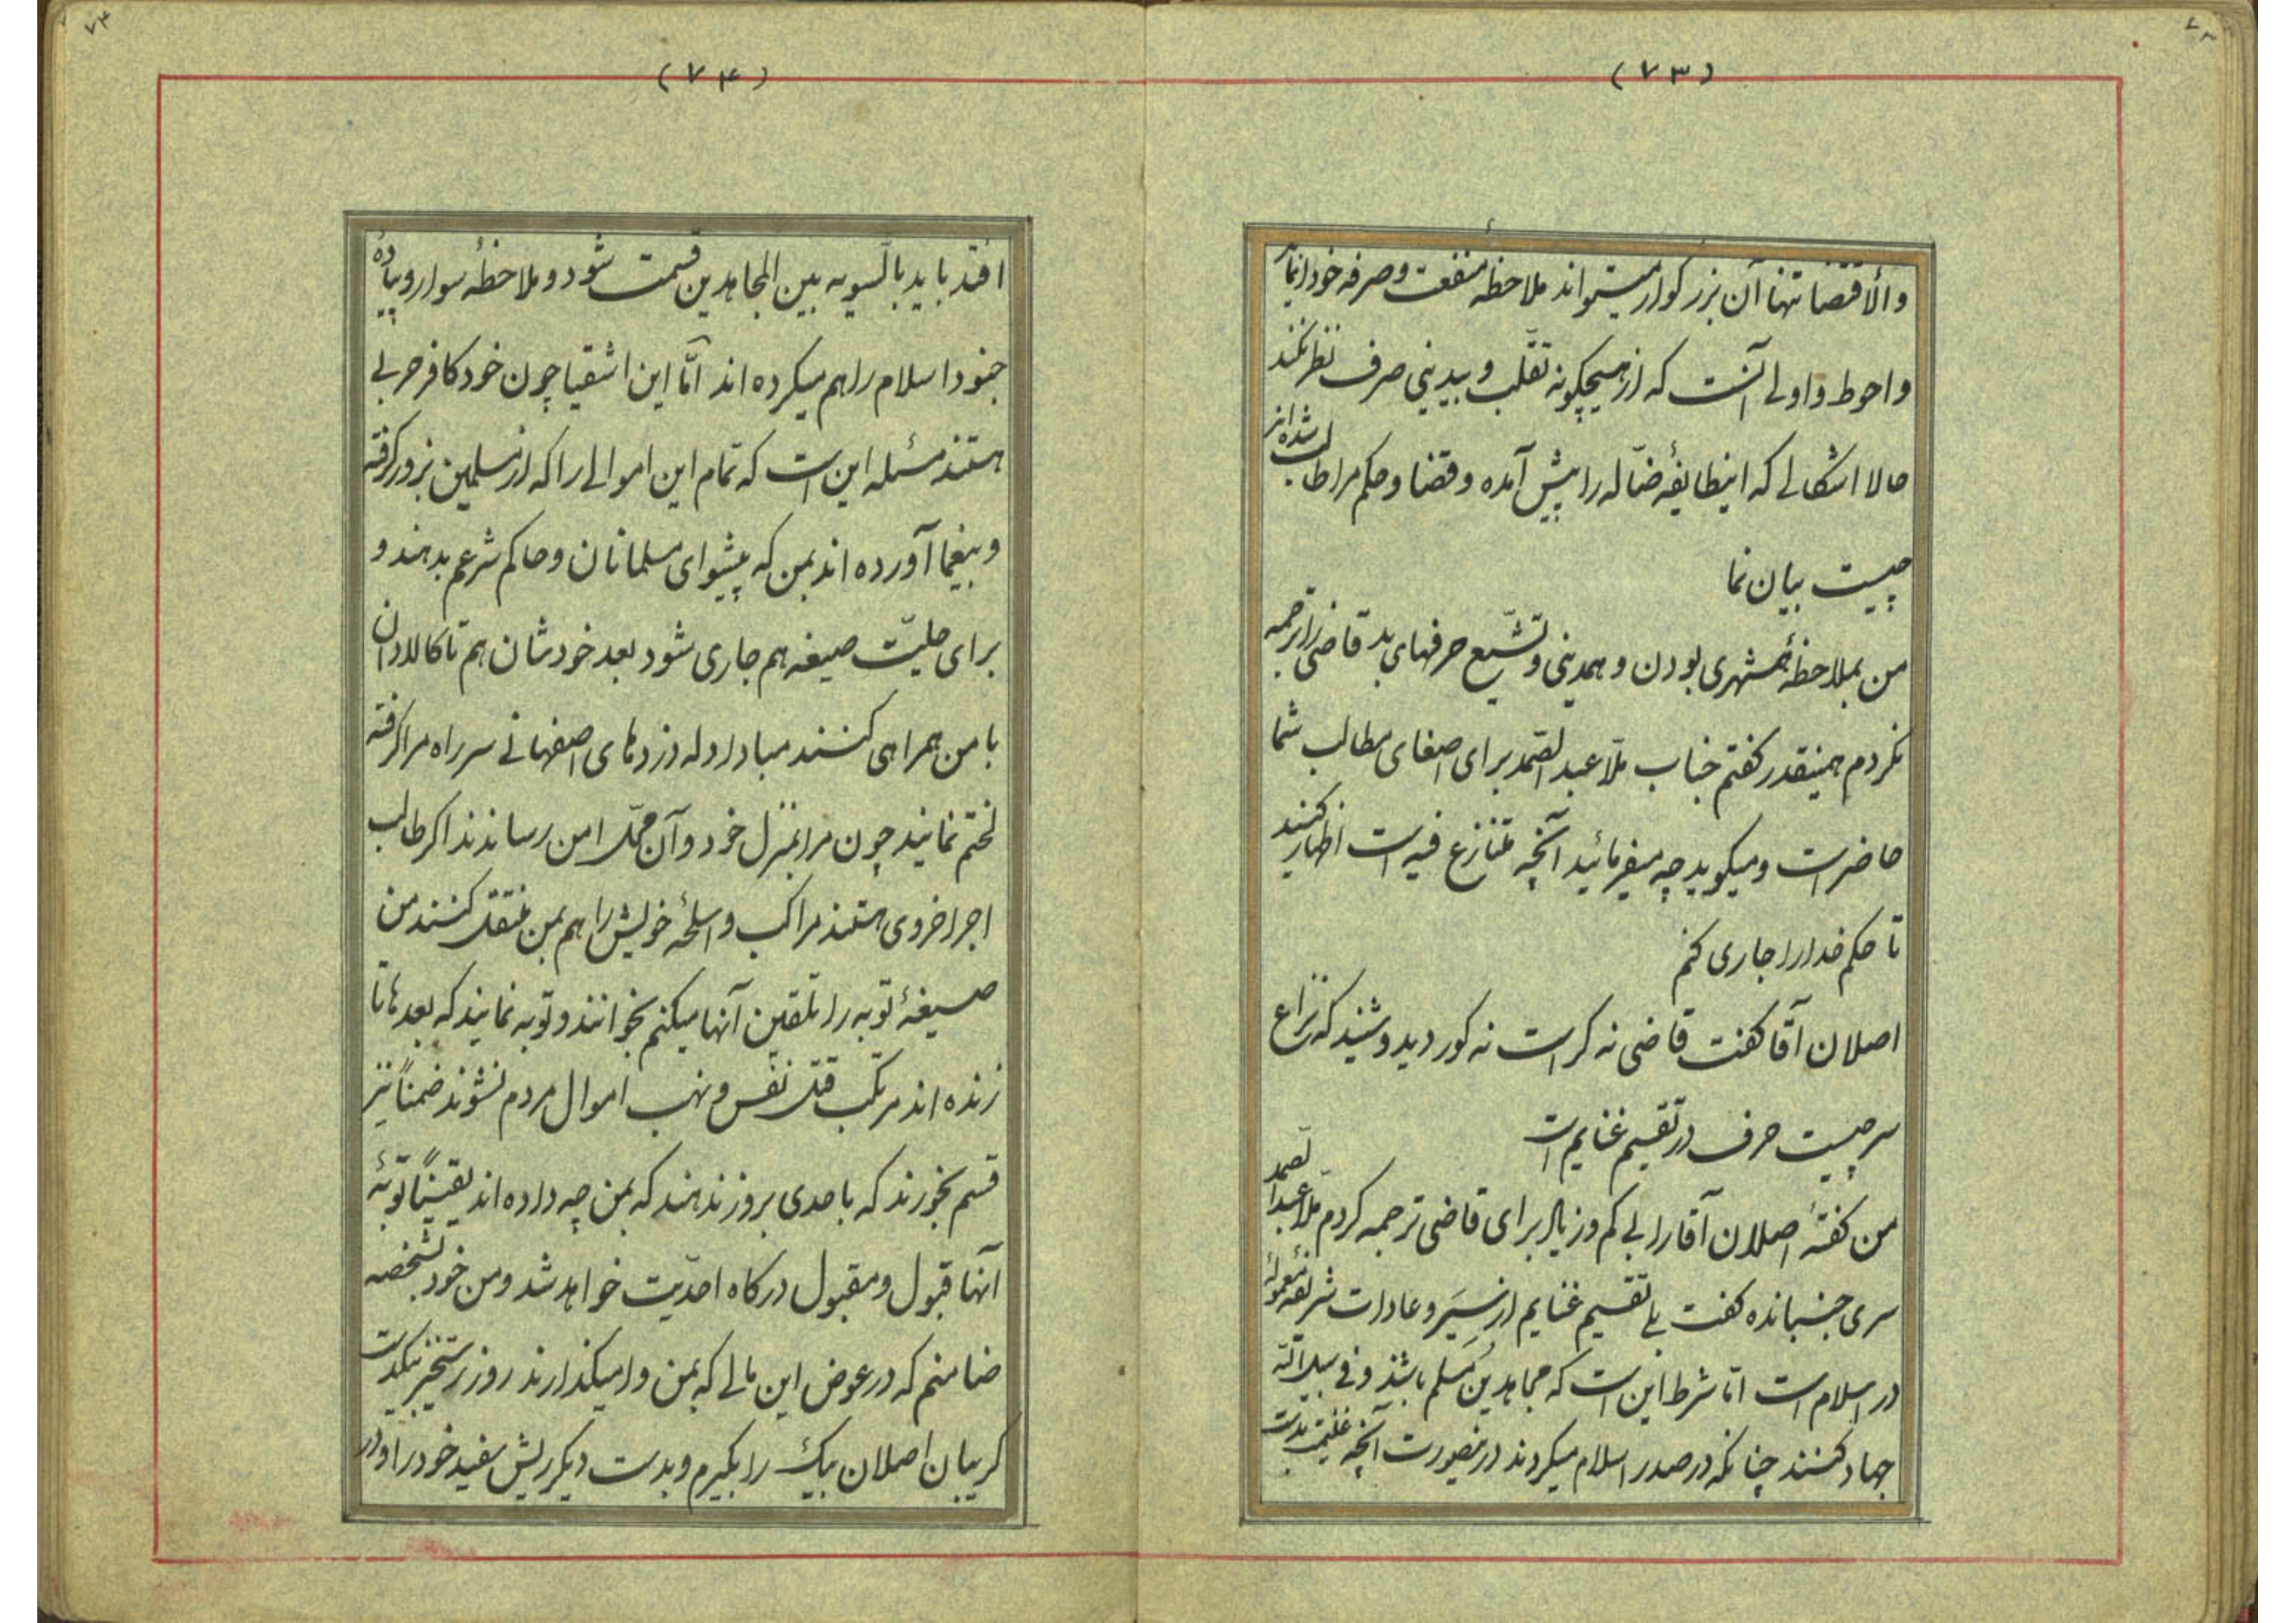 (۷۳)
والاقتضا تنها آن بزرگوار میتواند ملاحظه منفعت و صرفه خود را نماید
و احوط و اولی آنست که از هیچگونه تقلّب و بیدینی صرف نظر نکند
حالا اشکالی که اینطایفهٔ ضالّه را پیش آمده و قضا و حکم مرا طالب شده‌اند
چیست بیان نما
من بملاحظهٔ همشهری بودن و همدینی و تشیّع حرفهای بد قاضی را ترجمه
نکردم همینقدر گفتم جناب ملّا عبدالصّمد برای اصغای مطالب شما
حاضر است و میگوید چه میفرمائید آنچه متنازع فیه است اظهار کنید
تا حکم خدا را جاری کنم
اصلان آقا گفت قاضی نه کر است نه کور دید و شنید که نزاع
سر چیست حرف در تقسیم غنایم است
من گفتهٔ اصلان آقا را بی کم و زیاد برای قاضی ترجمه کردم ملّا عبدالصّمد
سری جنبانده گفت بلی تقسیم غنایم از سِیَر و عادات شریفهٔ معموله
در اسلام است امّا شرط این است که مجاهدین مُسلم باشند و فی سبیل الله
جهاد کنند چنانکه در صدر اسلام میکردند درینصورت آنچه غنیمت بدست
(۷۴)
افتد باید بالسّویه بین المجاهدین قسمت شود و ملاحظهٔ سوار و پیادهٔ
جنود اسلام را هم میکرده اند امّا این اشقیا چون خود کافر حربی
هستند مسئله این است که تمام این اموالی را که از مسلمین بزور گرفته
و بیغما آورده اند بمن که پیشوای مسلمانان و حاکم شرعم بدهند و
برای حلیّت صیغه هم جاری شود بعد خودشان هم تا کالادان
با من همراهی کنند مبادا دله دزدهای اصفهانی سر راه مرا گرفته
لختم نمایند چون مرا بمنزل خود و آن محلّ امن رساندند اگر طالب
اجر اخروی هستند مراکب و اسلحهٔ خویش را هم بمن منتقل کنند من
صیغهٔ توبه را تلقین آنها میکنم بخوانند و توبه نمایند که بعدها تا
زنده اند مرتکب قتل نفس و نهب اموال مردم نشوند ضمناً نیز
قسم بخورند که باحدی بروز ندهند که بمن چه داده اند یقیناً توبهٔ
آنها قبول و مقبول درگاه احدّیت خواهد شد و من خود بشخصه
ضامنم که در عوض این مالی که بمن وامیگذارند روز رستخیز بیکدست
گریبان اصلان بیک را بگیرم و بدست دیگر ریش سفید خود را و در